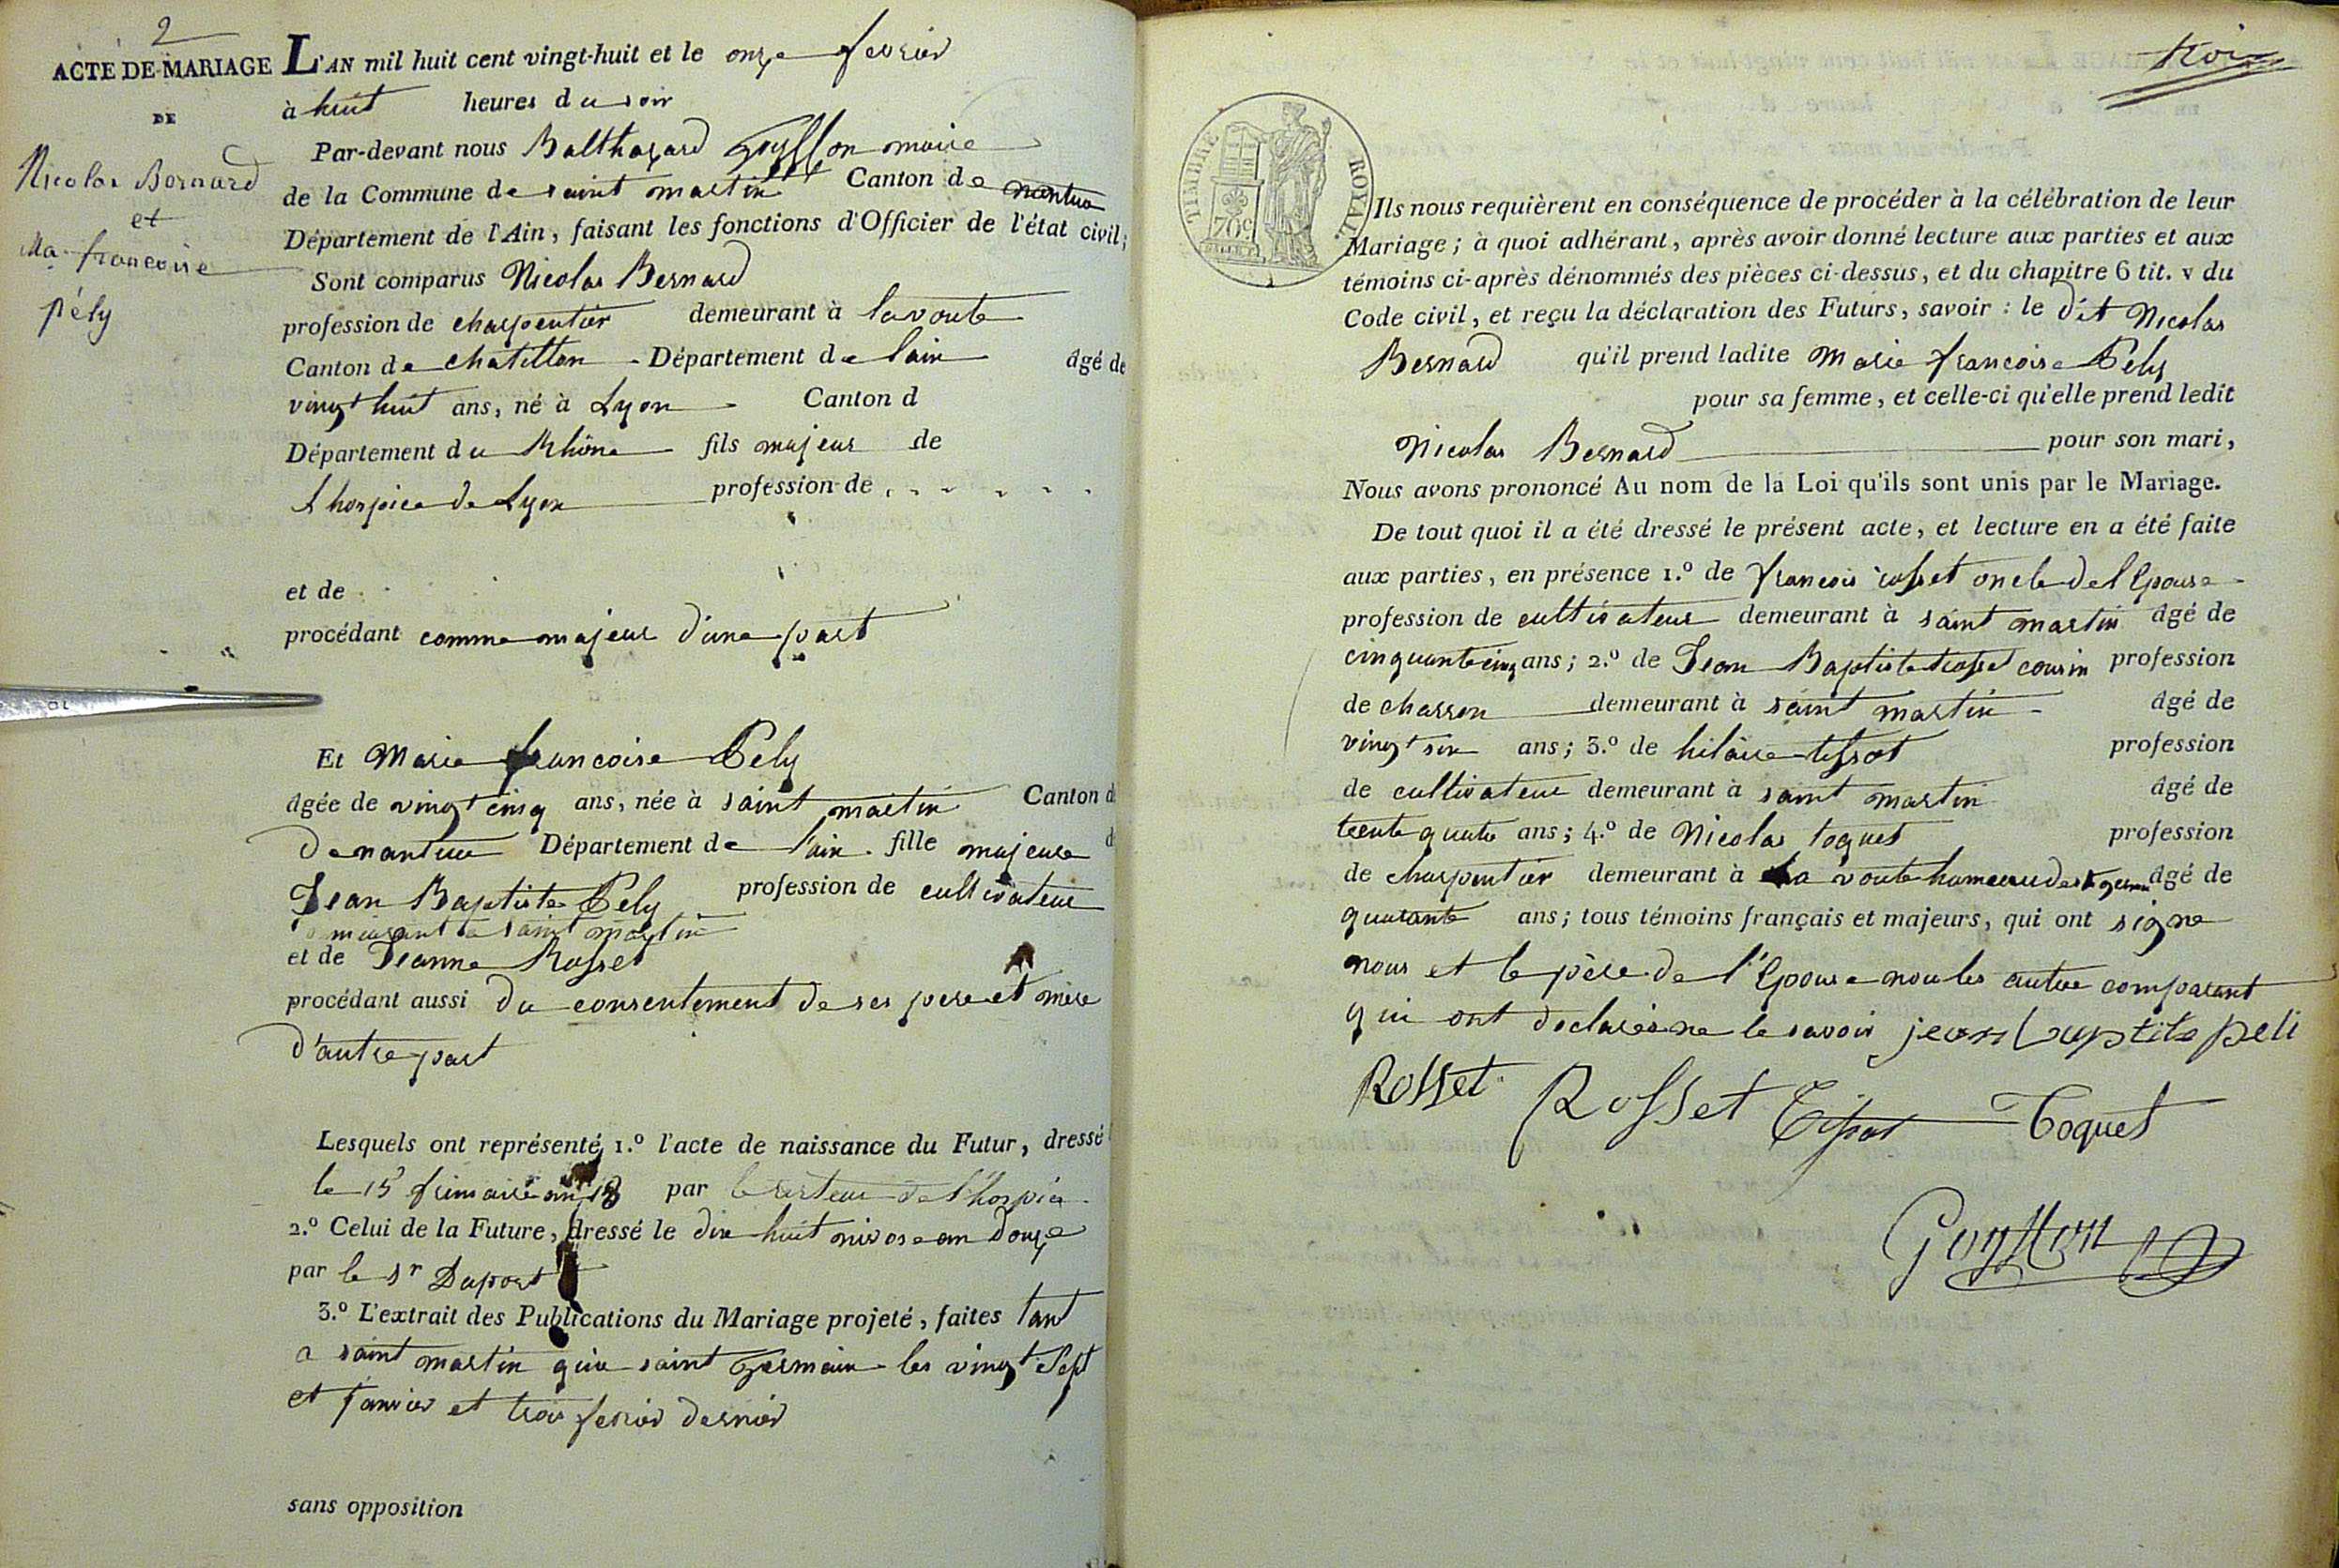 2
ACTE DE MARIAGE
DE
Nicolas Bernard
et
Ma. francoise
pély
L'AN mil huit cent vingt-huit et le onze fevrier
à huit heures du soir
Par-devant nous Balthazard Gouffon maire
de la Commune de saint martin Canton de nantua
Département de l'Ain, faisant les fonctions d'Officier de l'état civil;
Sont comparus Nicolas Bernard
profession de charpentier demeurant à lavoute
Canton de chatillon Département de lain âgé de
vingt huit ans, né à Lyon Canton d
Département du Rhône fils majeur de
Lhospice de Lyon profession de
et de
procédant comme majeur d'une part
Et Marie francoise Pely
âgée de vingt cinq ans, née à saint martin Canton d
de nantua Département de lain fille majeure d
Jean Baptiste Pely profession de cultivateur
meurant a saint martin
et de Jeanne Rosset
procédant aussi du consentement de ses pere et mère
d'autre part
Lesquels ont représenté 1.º l'acte de naissance du Futur, dressé
le 15 frimaire an par le recteur de l'hospice
2.º Celui de la Future, dressé le dix huit nivose an douze
par le sr Dupont
3.º L'extrait des Publications du Mariage projeté, faites tant
a saint martin qua saint Germain les vingt sept
et janvier et trois fevrier dernier
sans opposition
trois
TIMBRE ROYAL
70c
Ils nous requièrent en conséquence de procéder à la célébration de leur
Mariage; à quoi adhérant, après avoir donné lecture aux parties et aux
témoins ci-après dénommés des pièces ci-dessus, et du chapitre 6 tit. v du
Code civil, et reçu la déclaration des Futurs, savoir : le dit Nicolas
Bernard qu'il prend ladite Marie francoise Pely
pour sa femme, et celle-ci qu'elle prend ledit
Nicolas Bernard pour son mari,
Nous avons prononcé Au nom de la Loi qu'ils sont unis par le Mariage.
De tout quoi il a été dressé le présent acte, et lecture en a été faite
aux parties, en présence 1.º de francois rosset oncle de l'Epouse
profession de cultivateur demeurant à saint martin âgé de
cinquante cinq ans; 2.º de Jean Baptiste rosset cousin profession
de charron demeurant à saint martin âgé de
vingt six ans; 3.º de hilaire tissot profession
de cultivateur demeurant à saint martin âgé de
trente quatre ans; 4.º de Nicolas toquet profession
de charpentier demeurant à La voute hameau de st germain âgé de
quarante ans; tous témoins français et majeurs, qui ont signe
nous et le père de l'Epouse non les autre comparant
qui ont declarés ne le savoir jean baptiste peli
Rosset Rosset Tissot Toquet
Gouffon